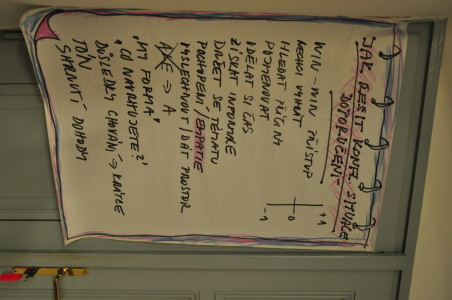 JAK ŘEŠIT KONFL. SITUACE
DOPORUČENÍ
WIN-WIN PŘÍSTUP
NECHCI VYHRÁT
HLEDAT PŘÍČINU
POJMENOVAT
UDĚLAT SI ČAS
ZÍSKAT INFORMACE
DRŽET SE TÉMATU
POCHOPENÍ / EMPATIE
VYSLECHNOUT / DÁT PROSTOR
ALE → A
"MY FORMA"
"CO NAVRHUJETE?"
DŮSLEDKY CHOVÁNÍ → KRÁTCE
TÓN
SHRNUTÍ DOHODY
+1
0
-1